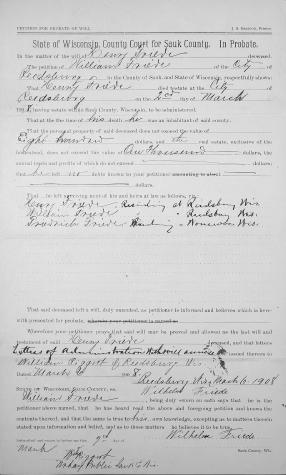 PETITION FOR PROBATE OF WILL.
State of Wisconsin, County Court for Sauk County. In Probate.
In the matter of the will of Henry Friede deceased.
The petition of William Friede of the City
of Reedsburg in the County of Sauk and State of Wisconsin, respectfully shows:
That Henry Friede died testate at the City
of Reedsburg on the 2nd day of March
190 leaving estate within Sauk County, to be administered.
That at the time of his death he was an inhabitant of said county.
That the personal property of said deceased does not exceed the value of
Eight Hundred dollars, and the real estate, exclusive of the
homestead, does not exceed the value of One Thousand dollars, the
annual rents and profits of which do not exceed dollars,
and there no debts known to your petitioner amounting to about
dollars.
That he left surviving next of kin and heirs at law as follows, viz:
Henry Friede, Residing at Reedsburg Wis
William Friede " " Reedsburg Wis.
Friedrich Friede Residing " Wis.
That said deceased left a will, duly executed, as petitioner is informed and believes which is here-
with presented for probate,
Wherefore your petitioner prays that said will may be proved and allowed as the last will and
testament of said Henry Friede deceased, and that letters
Letters of Administration with will annexed issued thereon to
William Riggert of Reedsburg Wis.
Dated March 6 8. Reedsburg Wis, March 6, 1908
Wilhelm Friede
STATE OF WISCONSIN, SAUK COUNTY, ss.
William Friede being duly sworn on oath says that he is the
petitioner above named, that he has heard read the above and foregoing petition and knows the
contents thereof, and that the same is true to his own knowledge, excepting as to matters therein
stated upon information and belief, and as to those matters he believes it to be true.
Subscribed and sworn to before me this 7th day of Wilhelm Friede
March Sauk County, Wis.
Notary Public Sauk Co Wis.